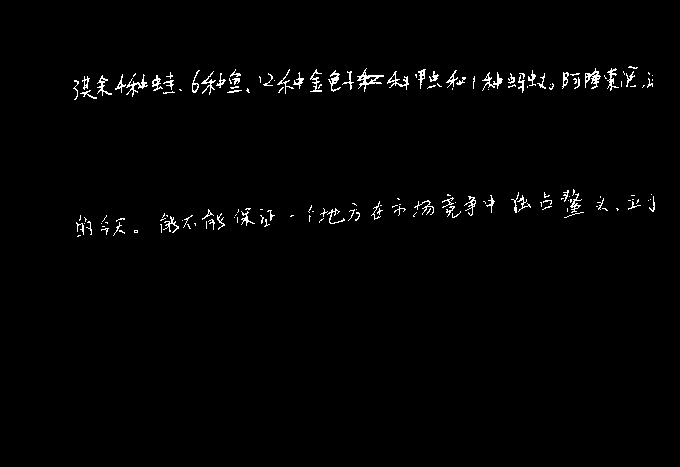 其余4种蛙、6种鱼、12种金色科甲虫和1种蚂蚁。阿隆索说
的今天。能不能保证一个地方在市场竞争中独占鳌头、立于